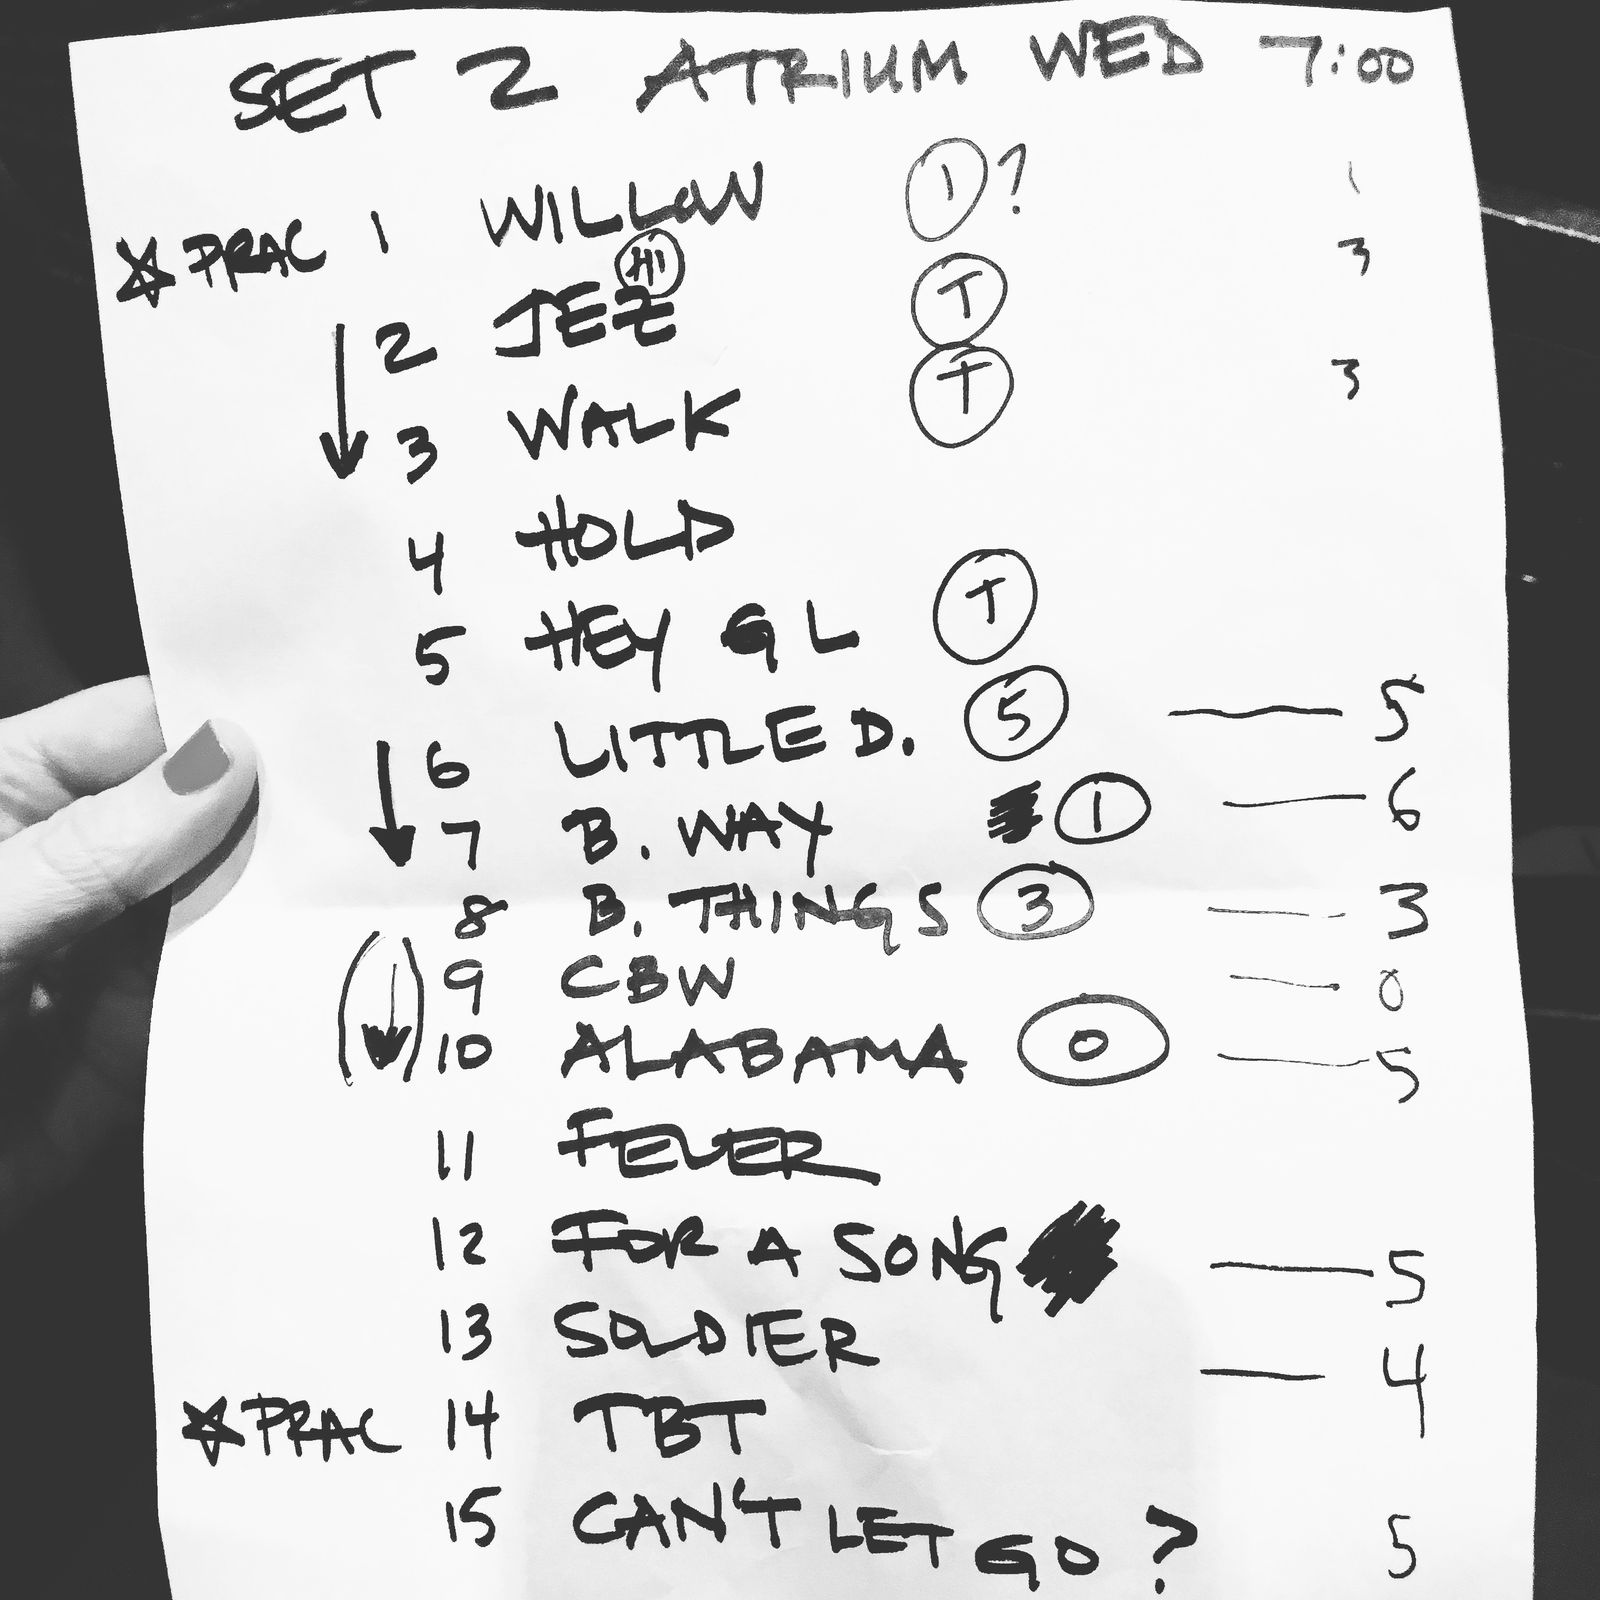 SET 2 ATRIUM WED 7:00
☆ PRAC 1 WILLOW 1 ? 1
HI
↓ 2 JEZ T 3
3 WALK T 3
4 HOLD
5 HEY G L T
↓ 6 LITTLE D. 5 — 5
7 B. WAY 1 — 6
8 B. THINGS 3 — 3
(↓) 9 CBW — 0
10 ALABAMA 0 — 5
11 FEVER
12 FOR A SONG — 5
13 SOLDIER — 4
☆ PRAC 14 TBT
15 CAN'T LET GO ? 5